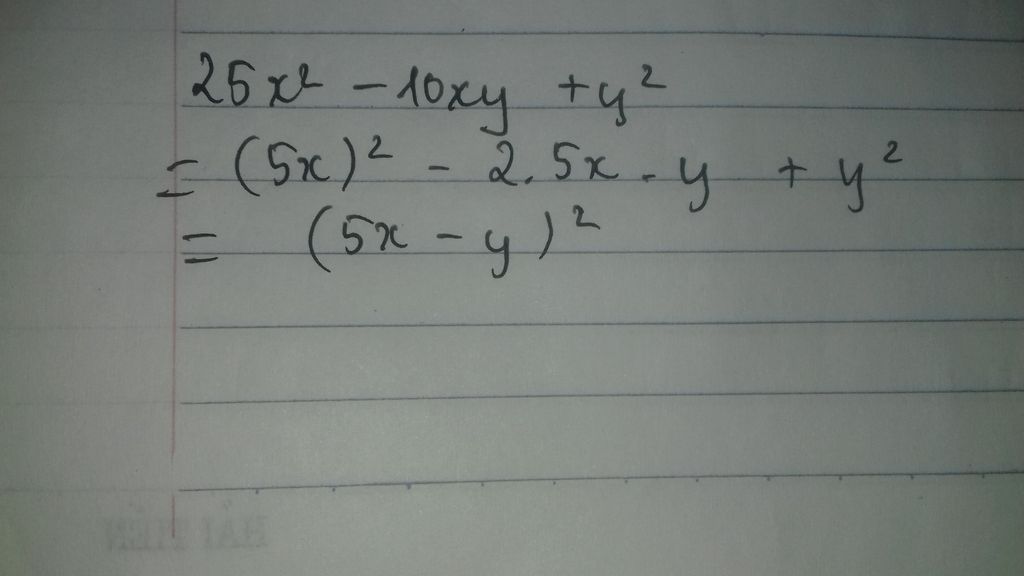 25x² - 10xy + y²
= (5x)² - 2.5x.y + y²
= (5x - y)²